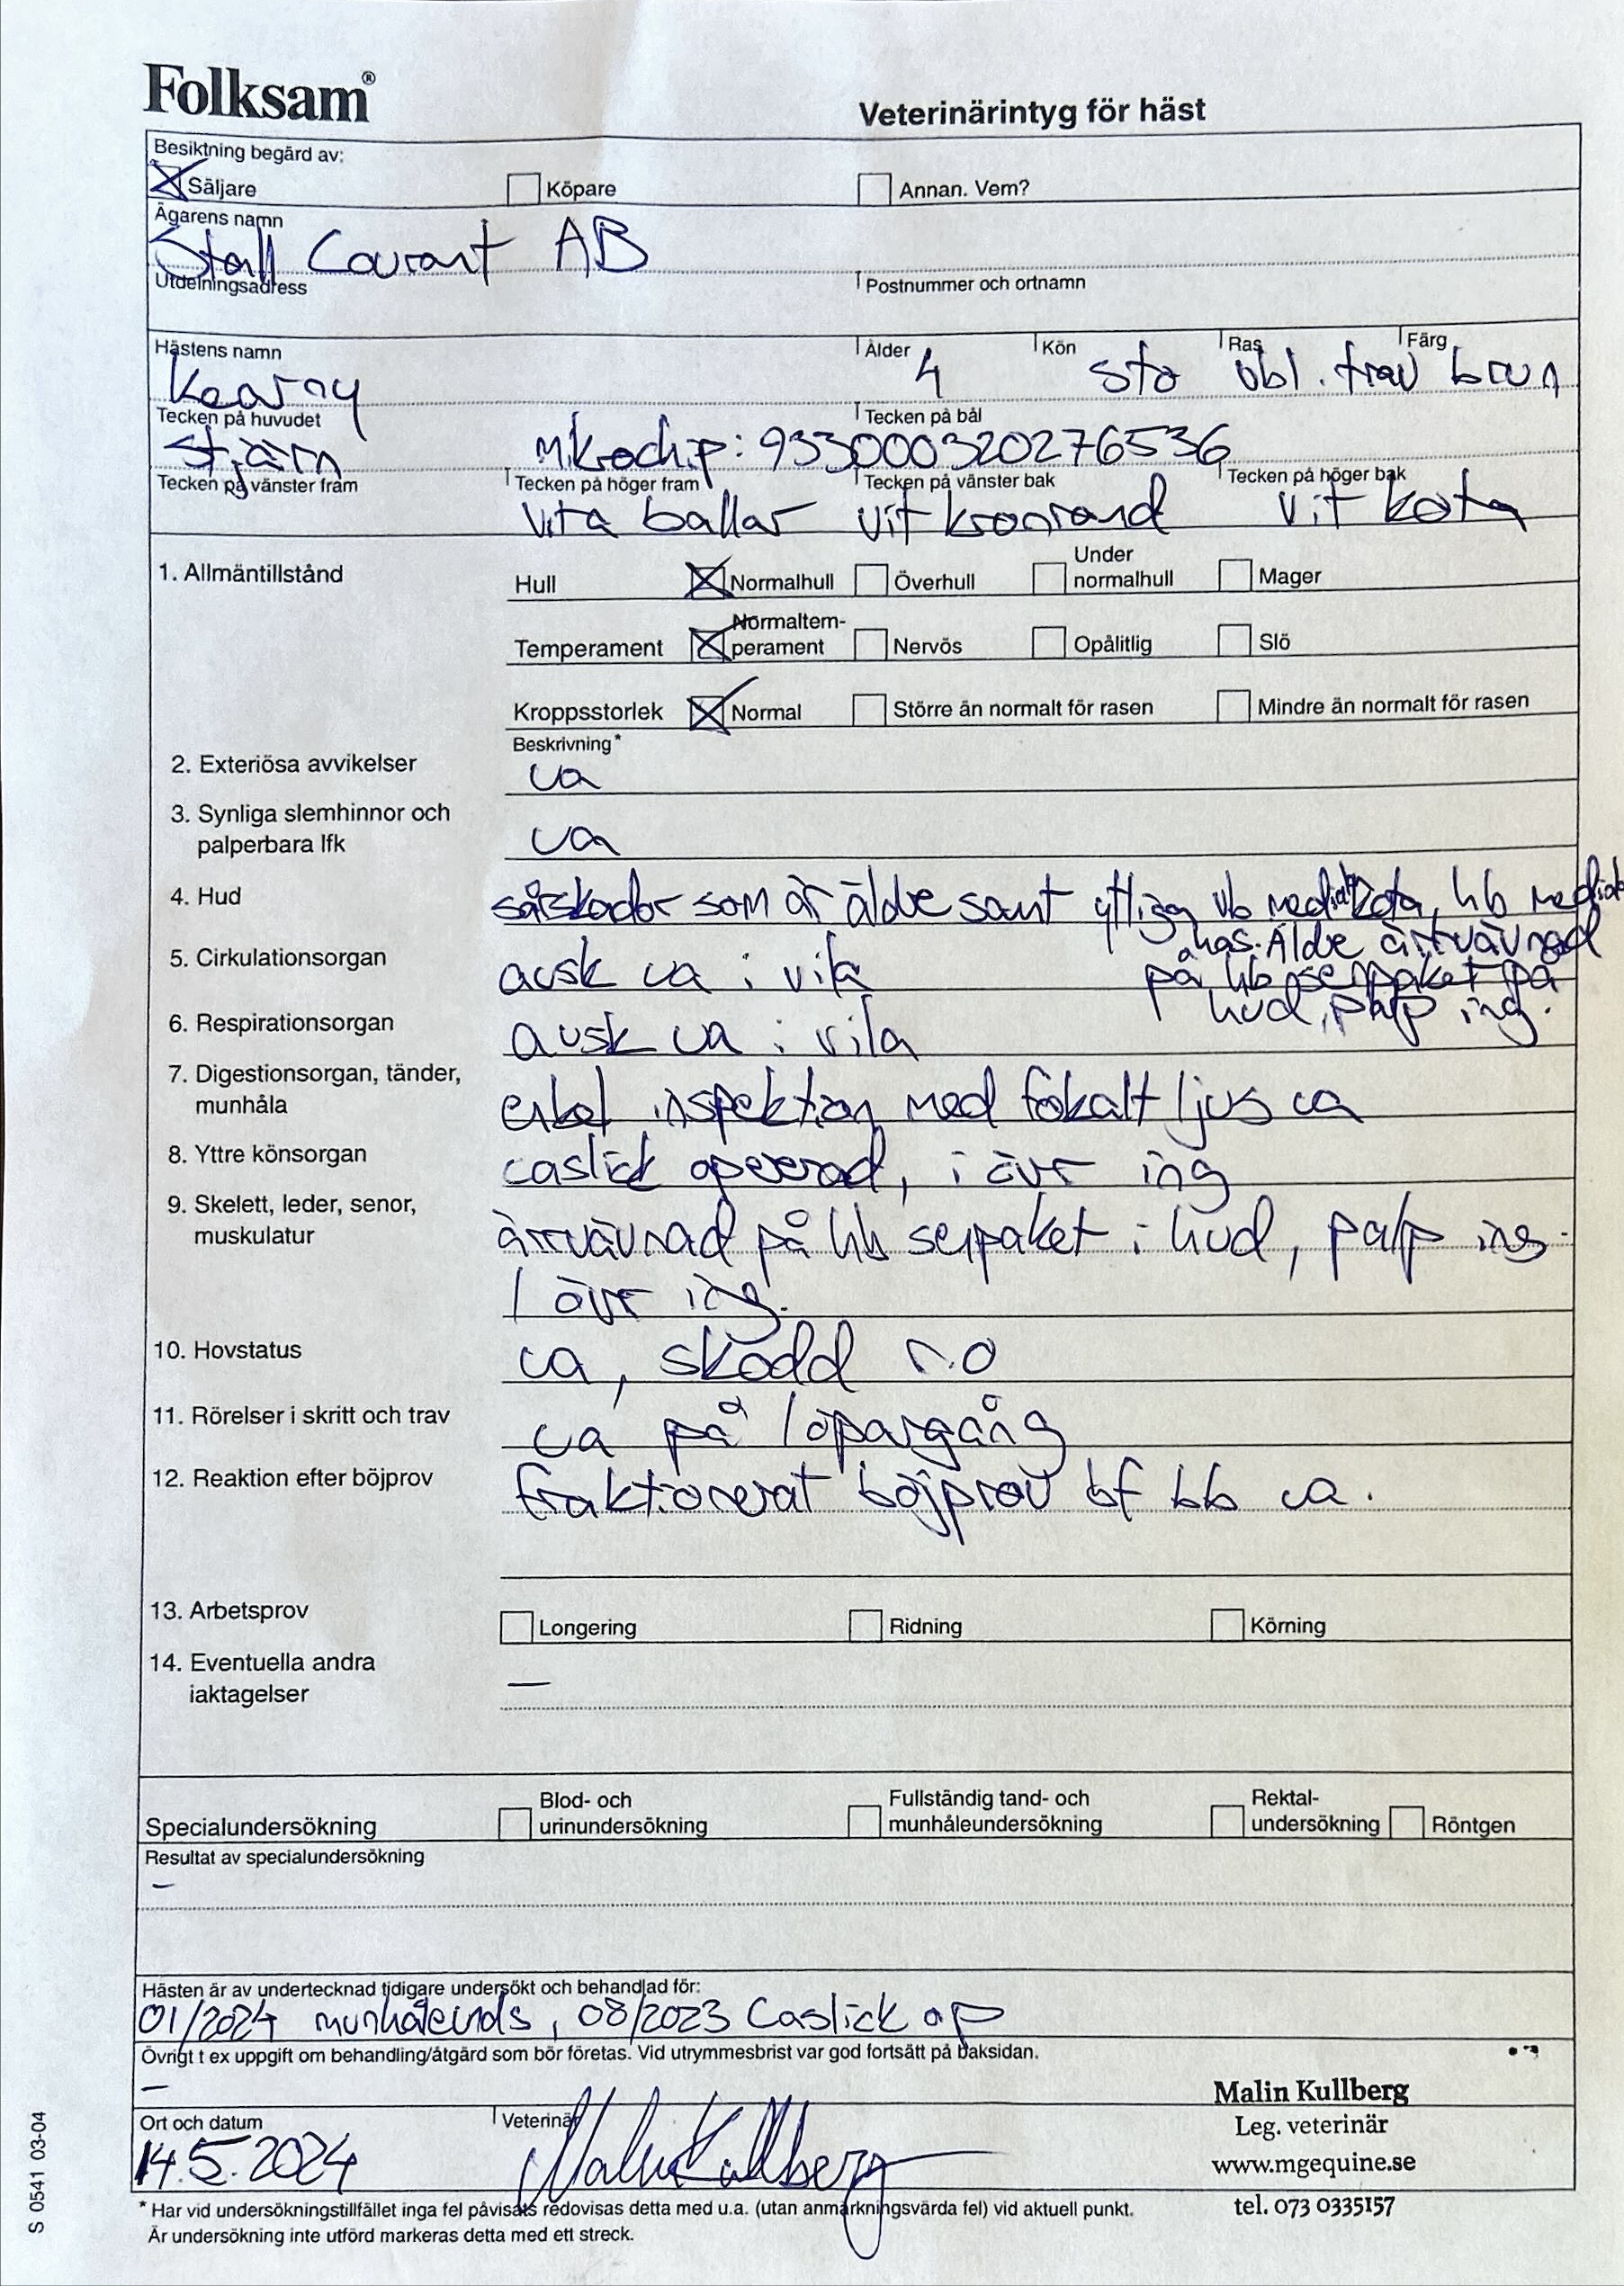 Folksam®
Veterinärintyg för häst
Besiktning begärd av:
Säljare Köpare Annan. Vem?
Ägarens namn
Stall Courant AB
Utdelningsadress Postnummer och ortnamn
Hästens namn Ålder Kön Ras Färg
Kearny 4 sto vbl. trav brun
Tecken på huvudet Tecken på bål
Stjärn mikrochip: 933000320276536
Tecken på vänster fram Tecken på höger fram Tecken på vänster bak Tecken på höger bak
vita ballar vit kronrand vit kota
1. Allmäntillstånd
Hull Normalhull Överhull Under normalhull Mager
Temperament Normaltem-perament Nervös Opålitlig Slö
Kroppsstorlek Normal Större än normalt för rasen Mindre än normalt för rasen
Beskrivning*
2. Exteriösa avvikelser ua
3. Synliga slemhinnor och
palperbara lfk ua
4. Hud sårskador som är äldre samt ytliga vb medialt kota, hb medialt
has. Äldre ärrvävnad
på hb senpaket på
hud, palp ing.
5. Cirkulationsorgan ausk ua i vila
6. Respirationsorgan ausk ua i vila
7. Digestionsorgan, tänder,
munhåla enkel inspektion med fokalt ljus ua
8. Yttre könsorgan caslick opererad, i övr ing
9. Skelett, leder, senor,
muskulatur ärrvävnad på hb senpaket i hud, palp ing.
I övr ing.
10. Hovstatus ua, skodd r.o
11. Rörelser i skritt och trav ua på löpargång
12. Reaktion efter böjprov fraktionerat böjprov bf bb ua.
13. Arbetsprov Longering Ridning Körning
14. Eventuella andra
iaktagelser —
Specialundersökning Blod- och urinundersökning Fullständig tand- och munhåleundersökning Rektal-undersökning Röntgen
Resultat av specialundersökning
–
Hästen är av undertecknad tidigare undersökt och behandlad för:
01/2024 munhåleunds, 08/2023 Caslick op
Övrigt t ex uppgift om behandling/åtgärd som bör företas. Vid utrymmesbrist var god fortsätt på baksidan.
–
Ort och datum Veterinär
14.5.2024 Malin Kullberg
Malin Kullberg
Leg. veterinär
www.mgequine.se
tel. 073 0335157
* Har vid undersökningstillfället inga fel påvisats redovisas detta med u.a. (utan anmärkningsvärda fel) vid aktuell punkt.
Är undersökning inte utförd markeras detta med ett streck.
S 0541 03-04